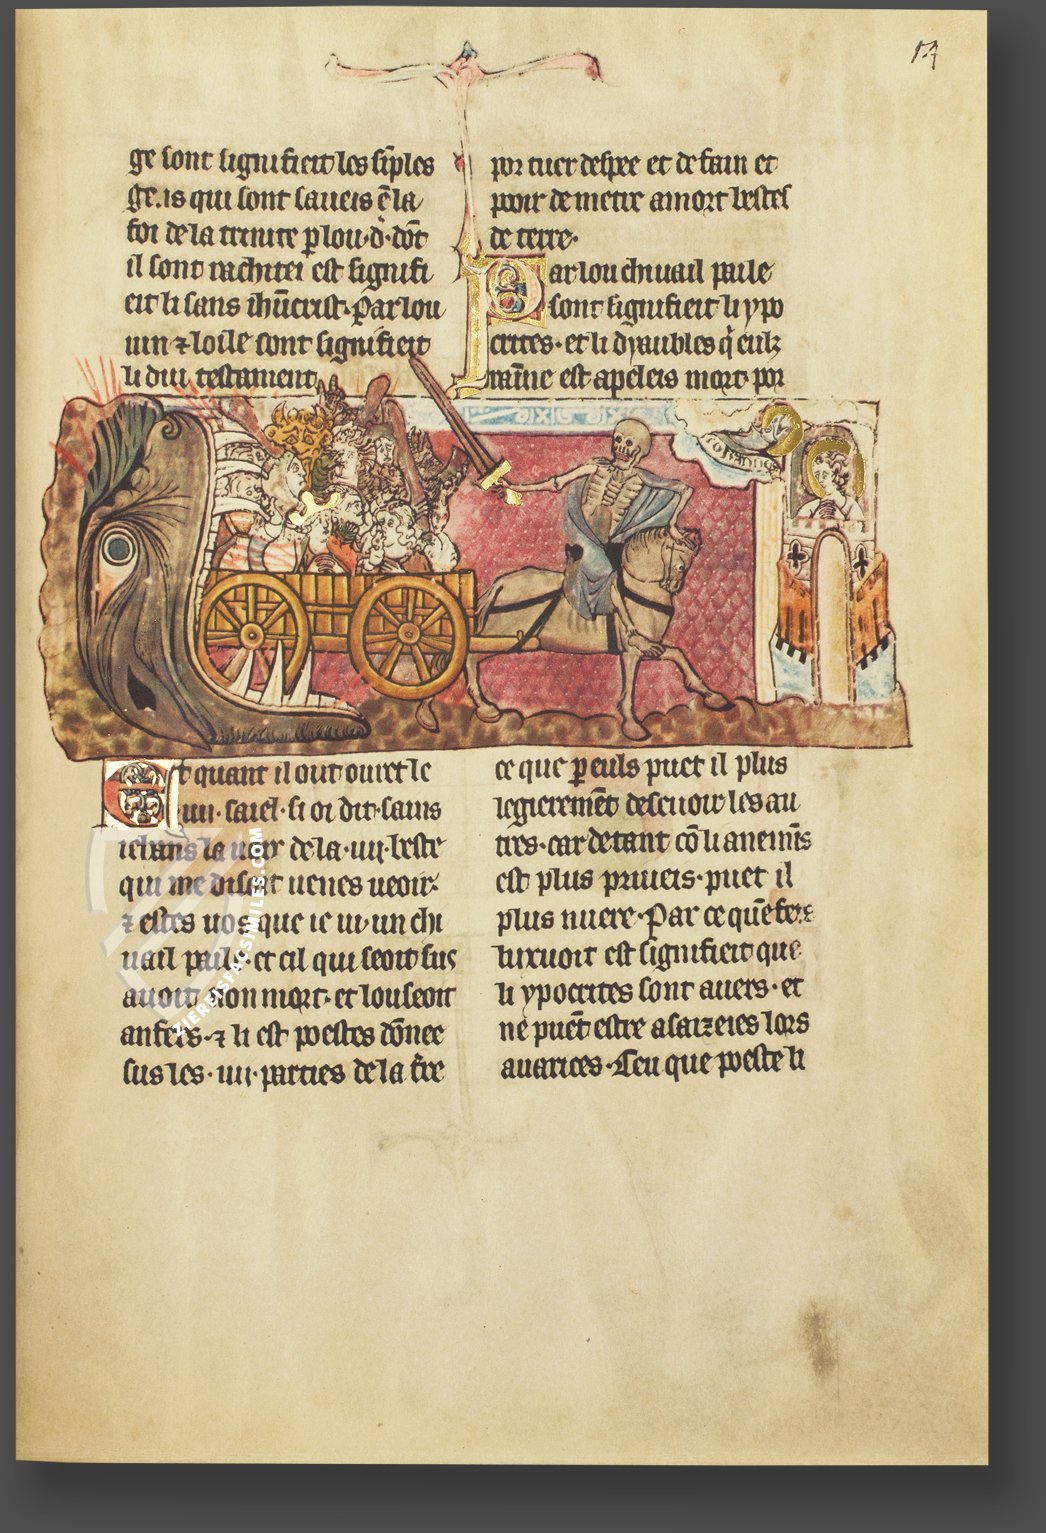 ge sont signifieit les sīples
ge.is qui sont saueis ē la
foi de la trinite p lou·d·dōt
il sont rachitei est signifi
eit li sans ihūcrist·Par lou
uin ⁊ loile sont signifieit
li dui testament
por tuer despee et de fain et
pooir de metre a mort bestes
de terre·
Par lou chiuail paile
sont signifieit li ypo
crites·et li dyaubles q̄
est apeleis mort·por
Iohannes
Et quant il out ouuert le
iiii·saiel·si oi dit·sains
iehans la uoix de la·iiii·beste
qui me disoit uenes ueoir·
⁊ estes uos que ie ui·un chi
uail paile·et cil qui seoit sus
auoit non mort·et lou seoit
anfers·⁊ li est poestes dōnee
sus les·iiii·parties de la t̄re
ce que p euls puet il plus
legieremēt desciuoir les au
tres·car de tant cō li anemis
est plus priueis·puet il
plus nuere·Par ce quē
luxuoir est signifieit que
li ypocrites sont auers·et
ne puēt estre asaizeies lors
auarices·Ceu que poeste li
ZIERESFACSIMILES.COM